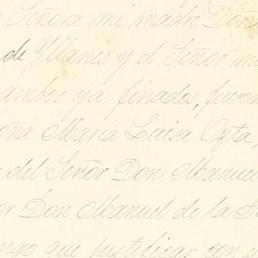 Señora mi madre Doña
de Yllanes y el Señor mi
ambos ya finados, fueron
Doña Maria Luisa Ozta
del Señor Don Manuel
Don Manuel de la
que justificar con